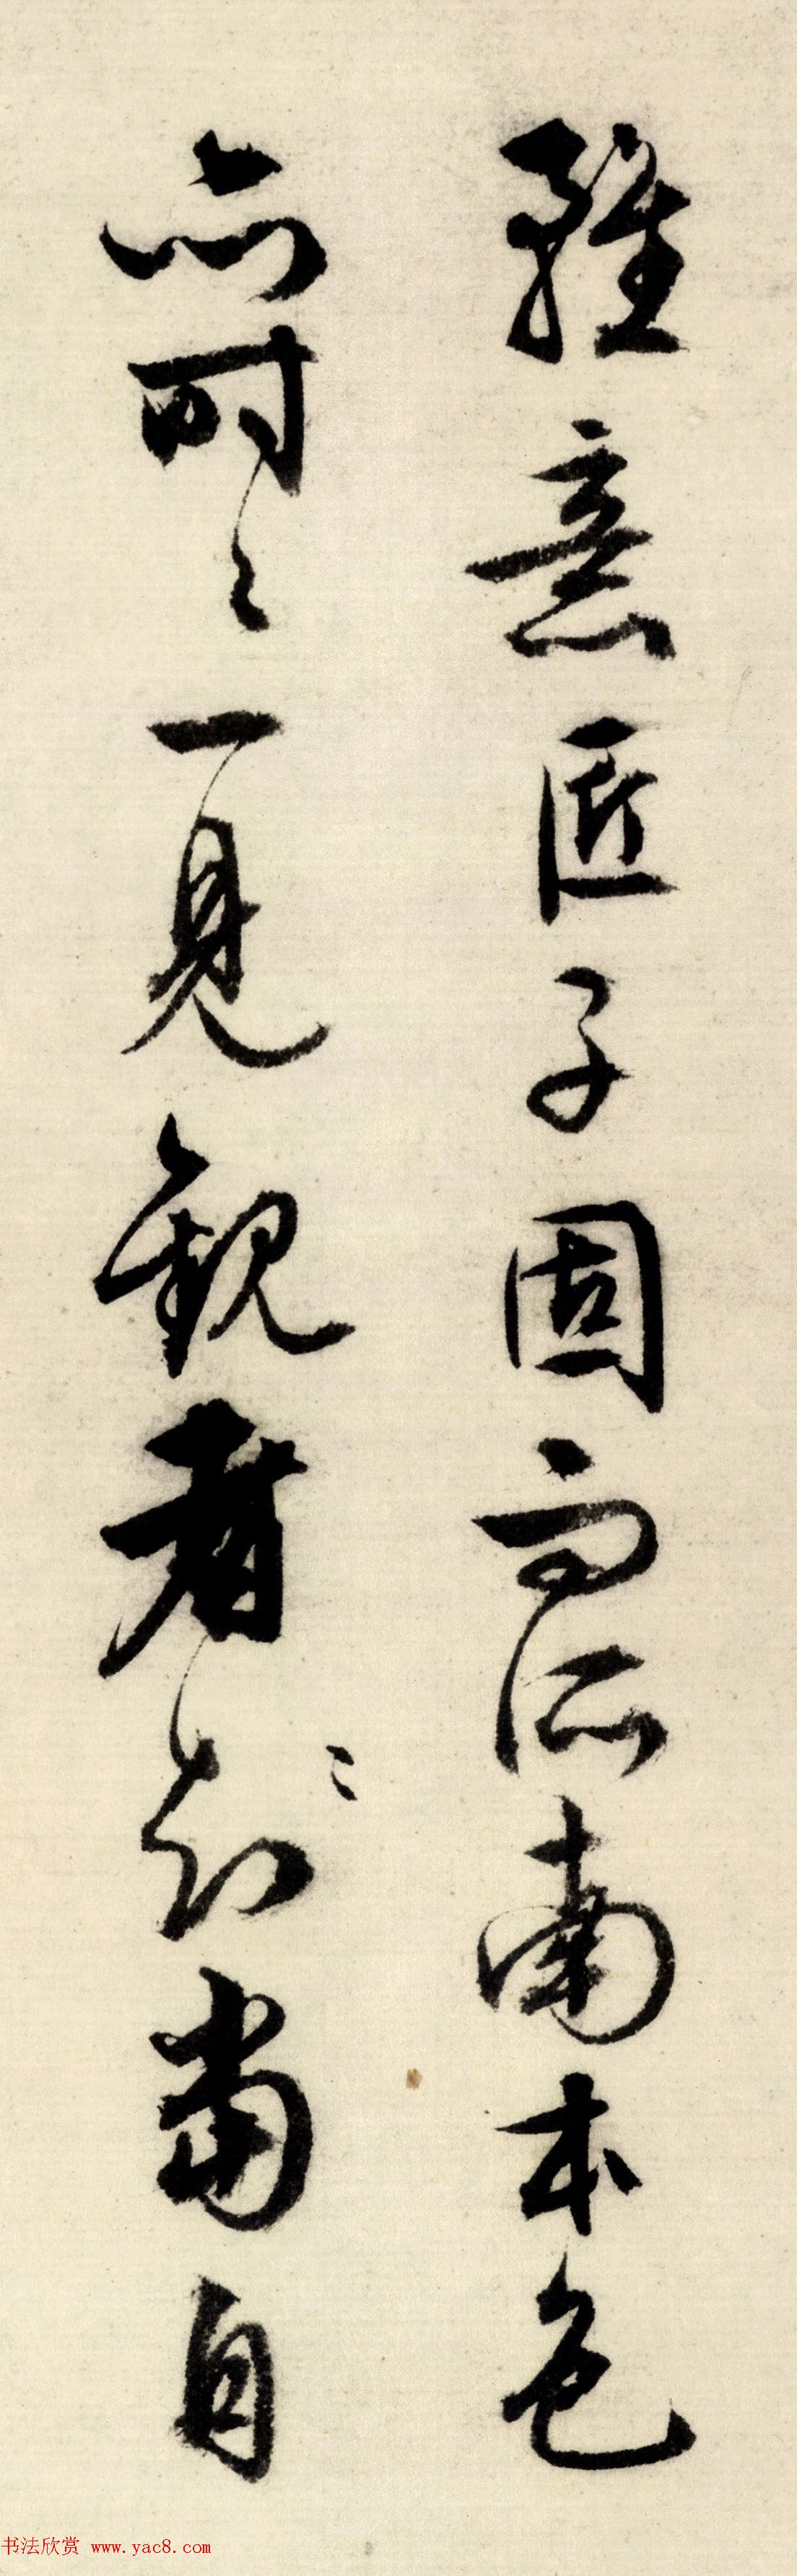 雖意匠子固而所南本色
亦時々一見觀者當自
书法欣赏 www.yac8.com